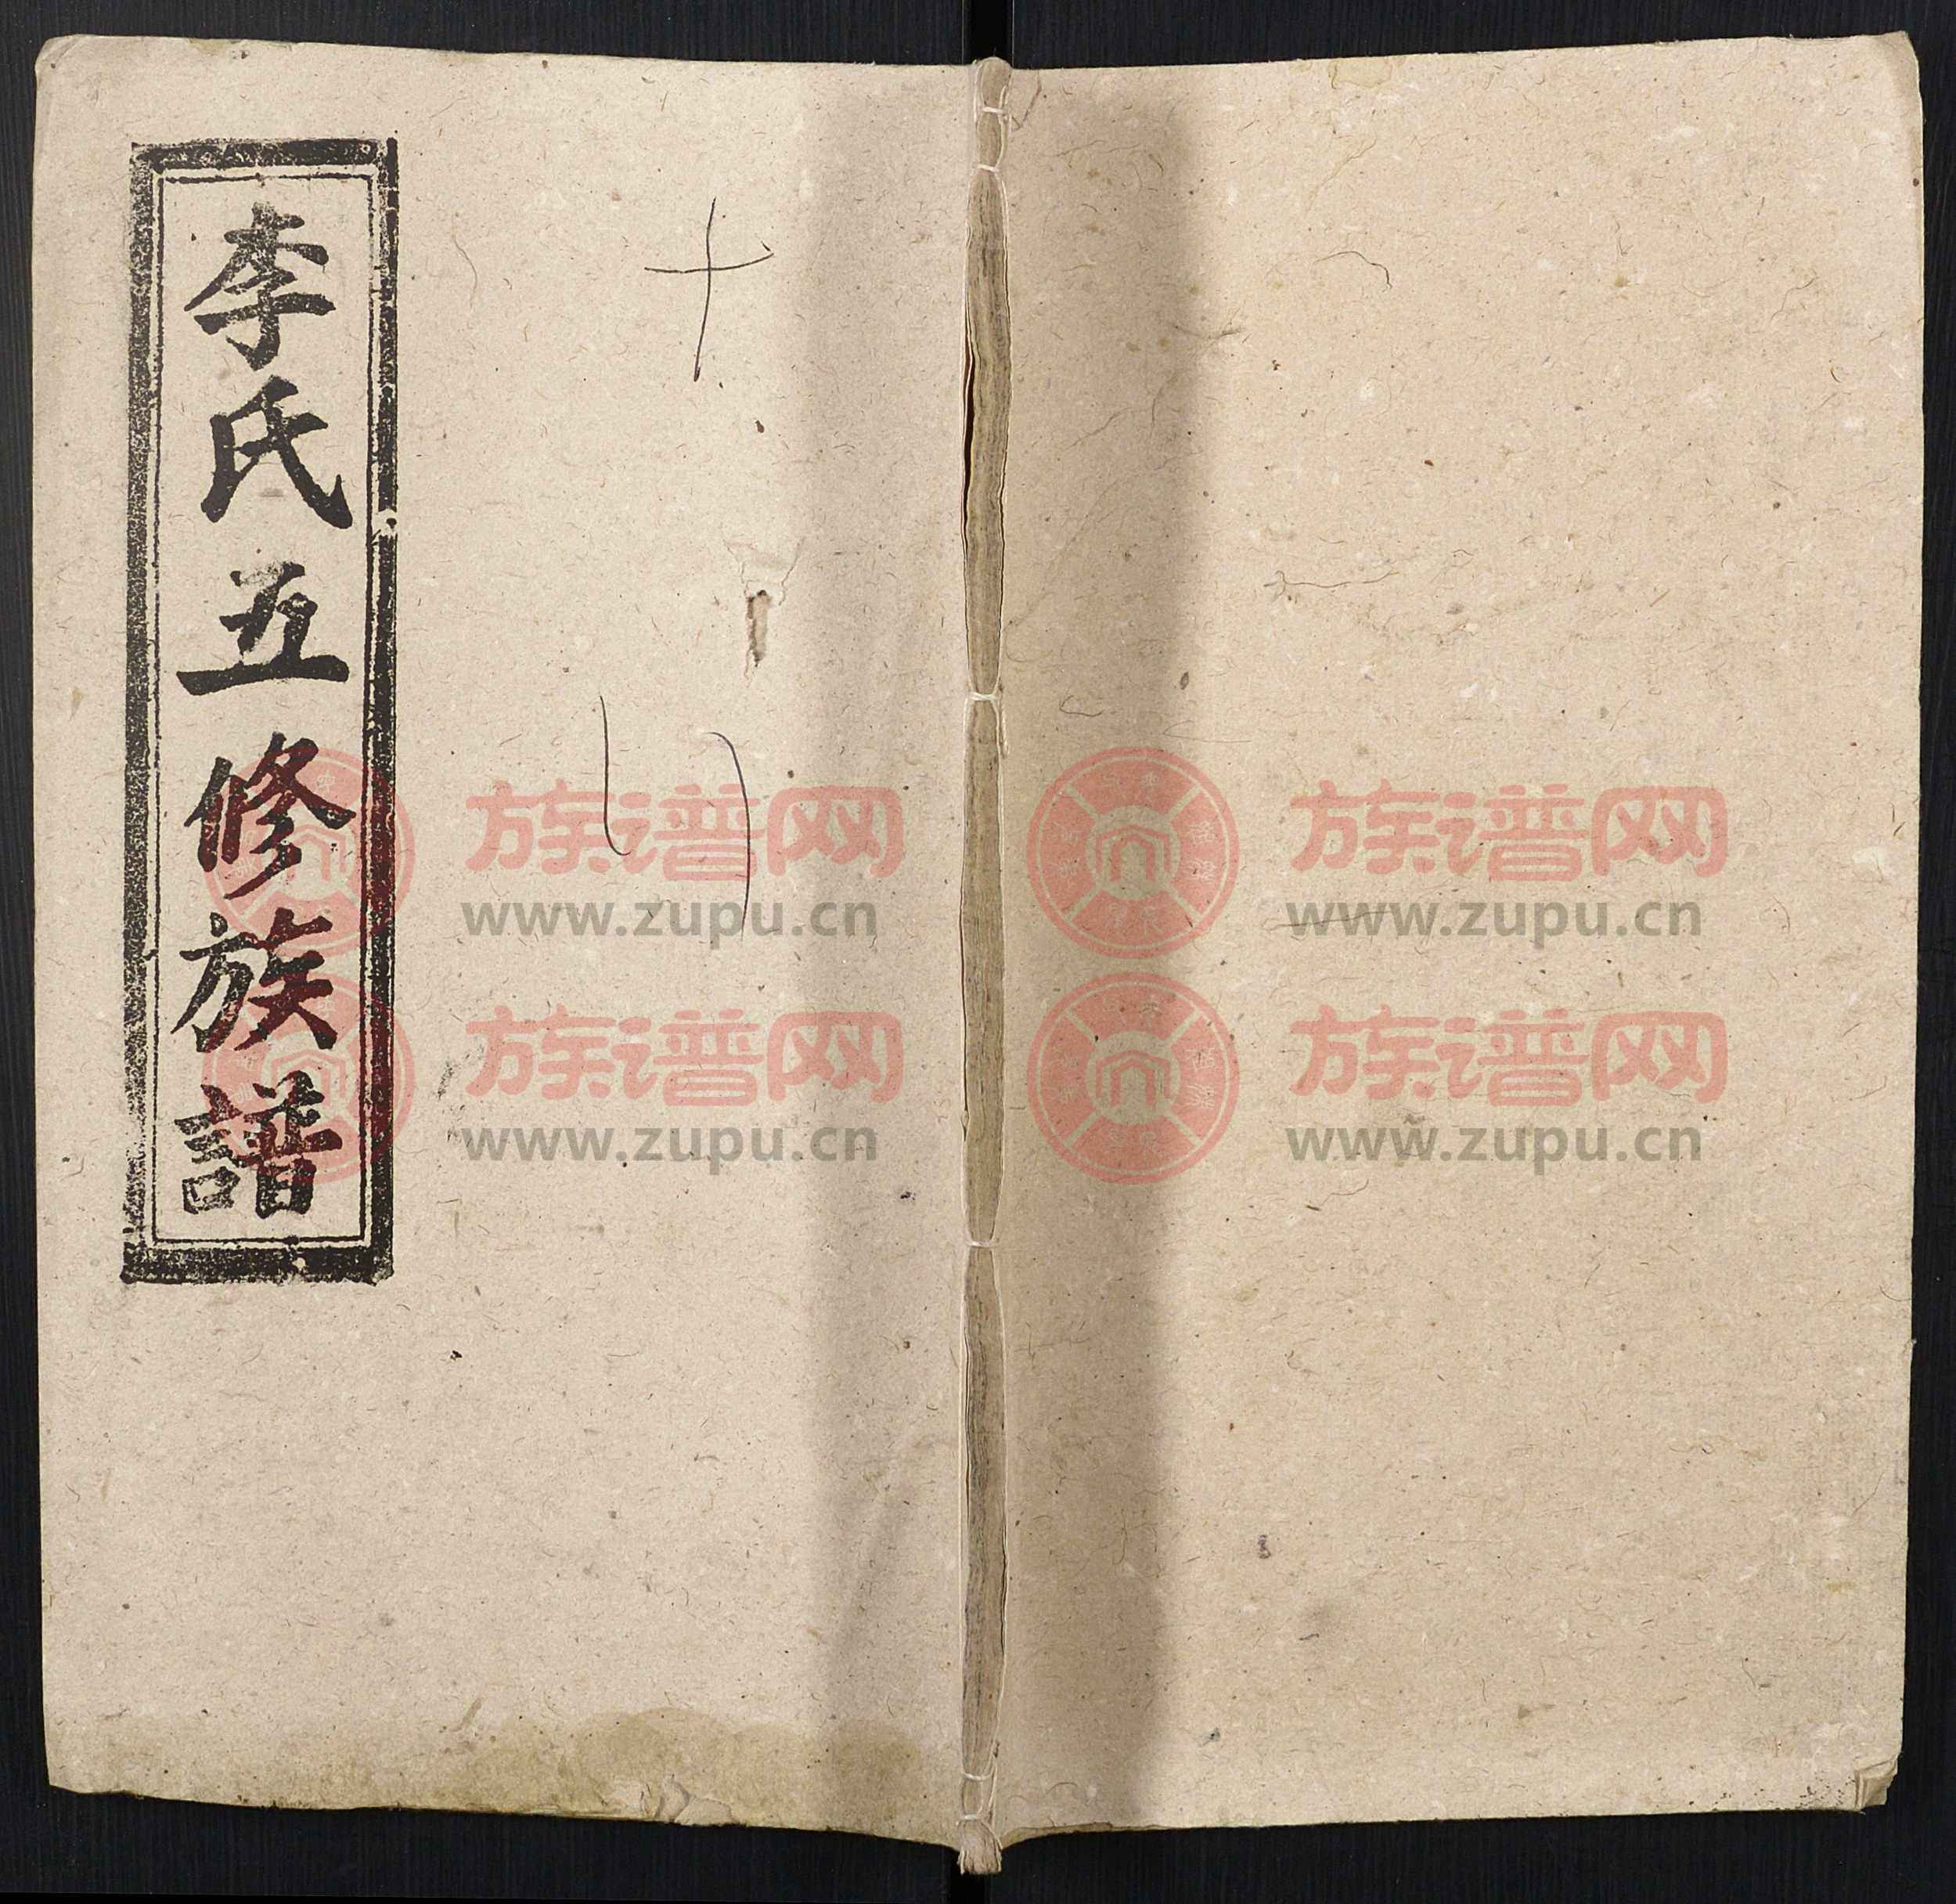 李氏五修族譜
十
八
族谱网
www.zupu.cn
族谱网
www.zupu.cn
族谱网
www.zupu.cn
族谱网
www.zupu.cn